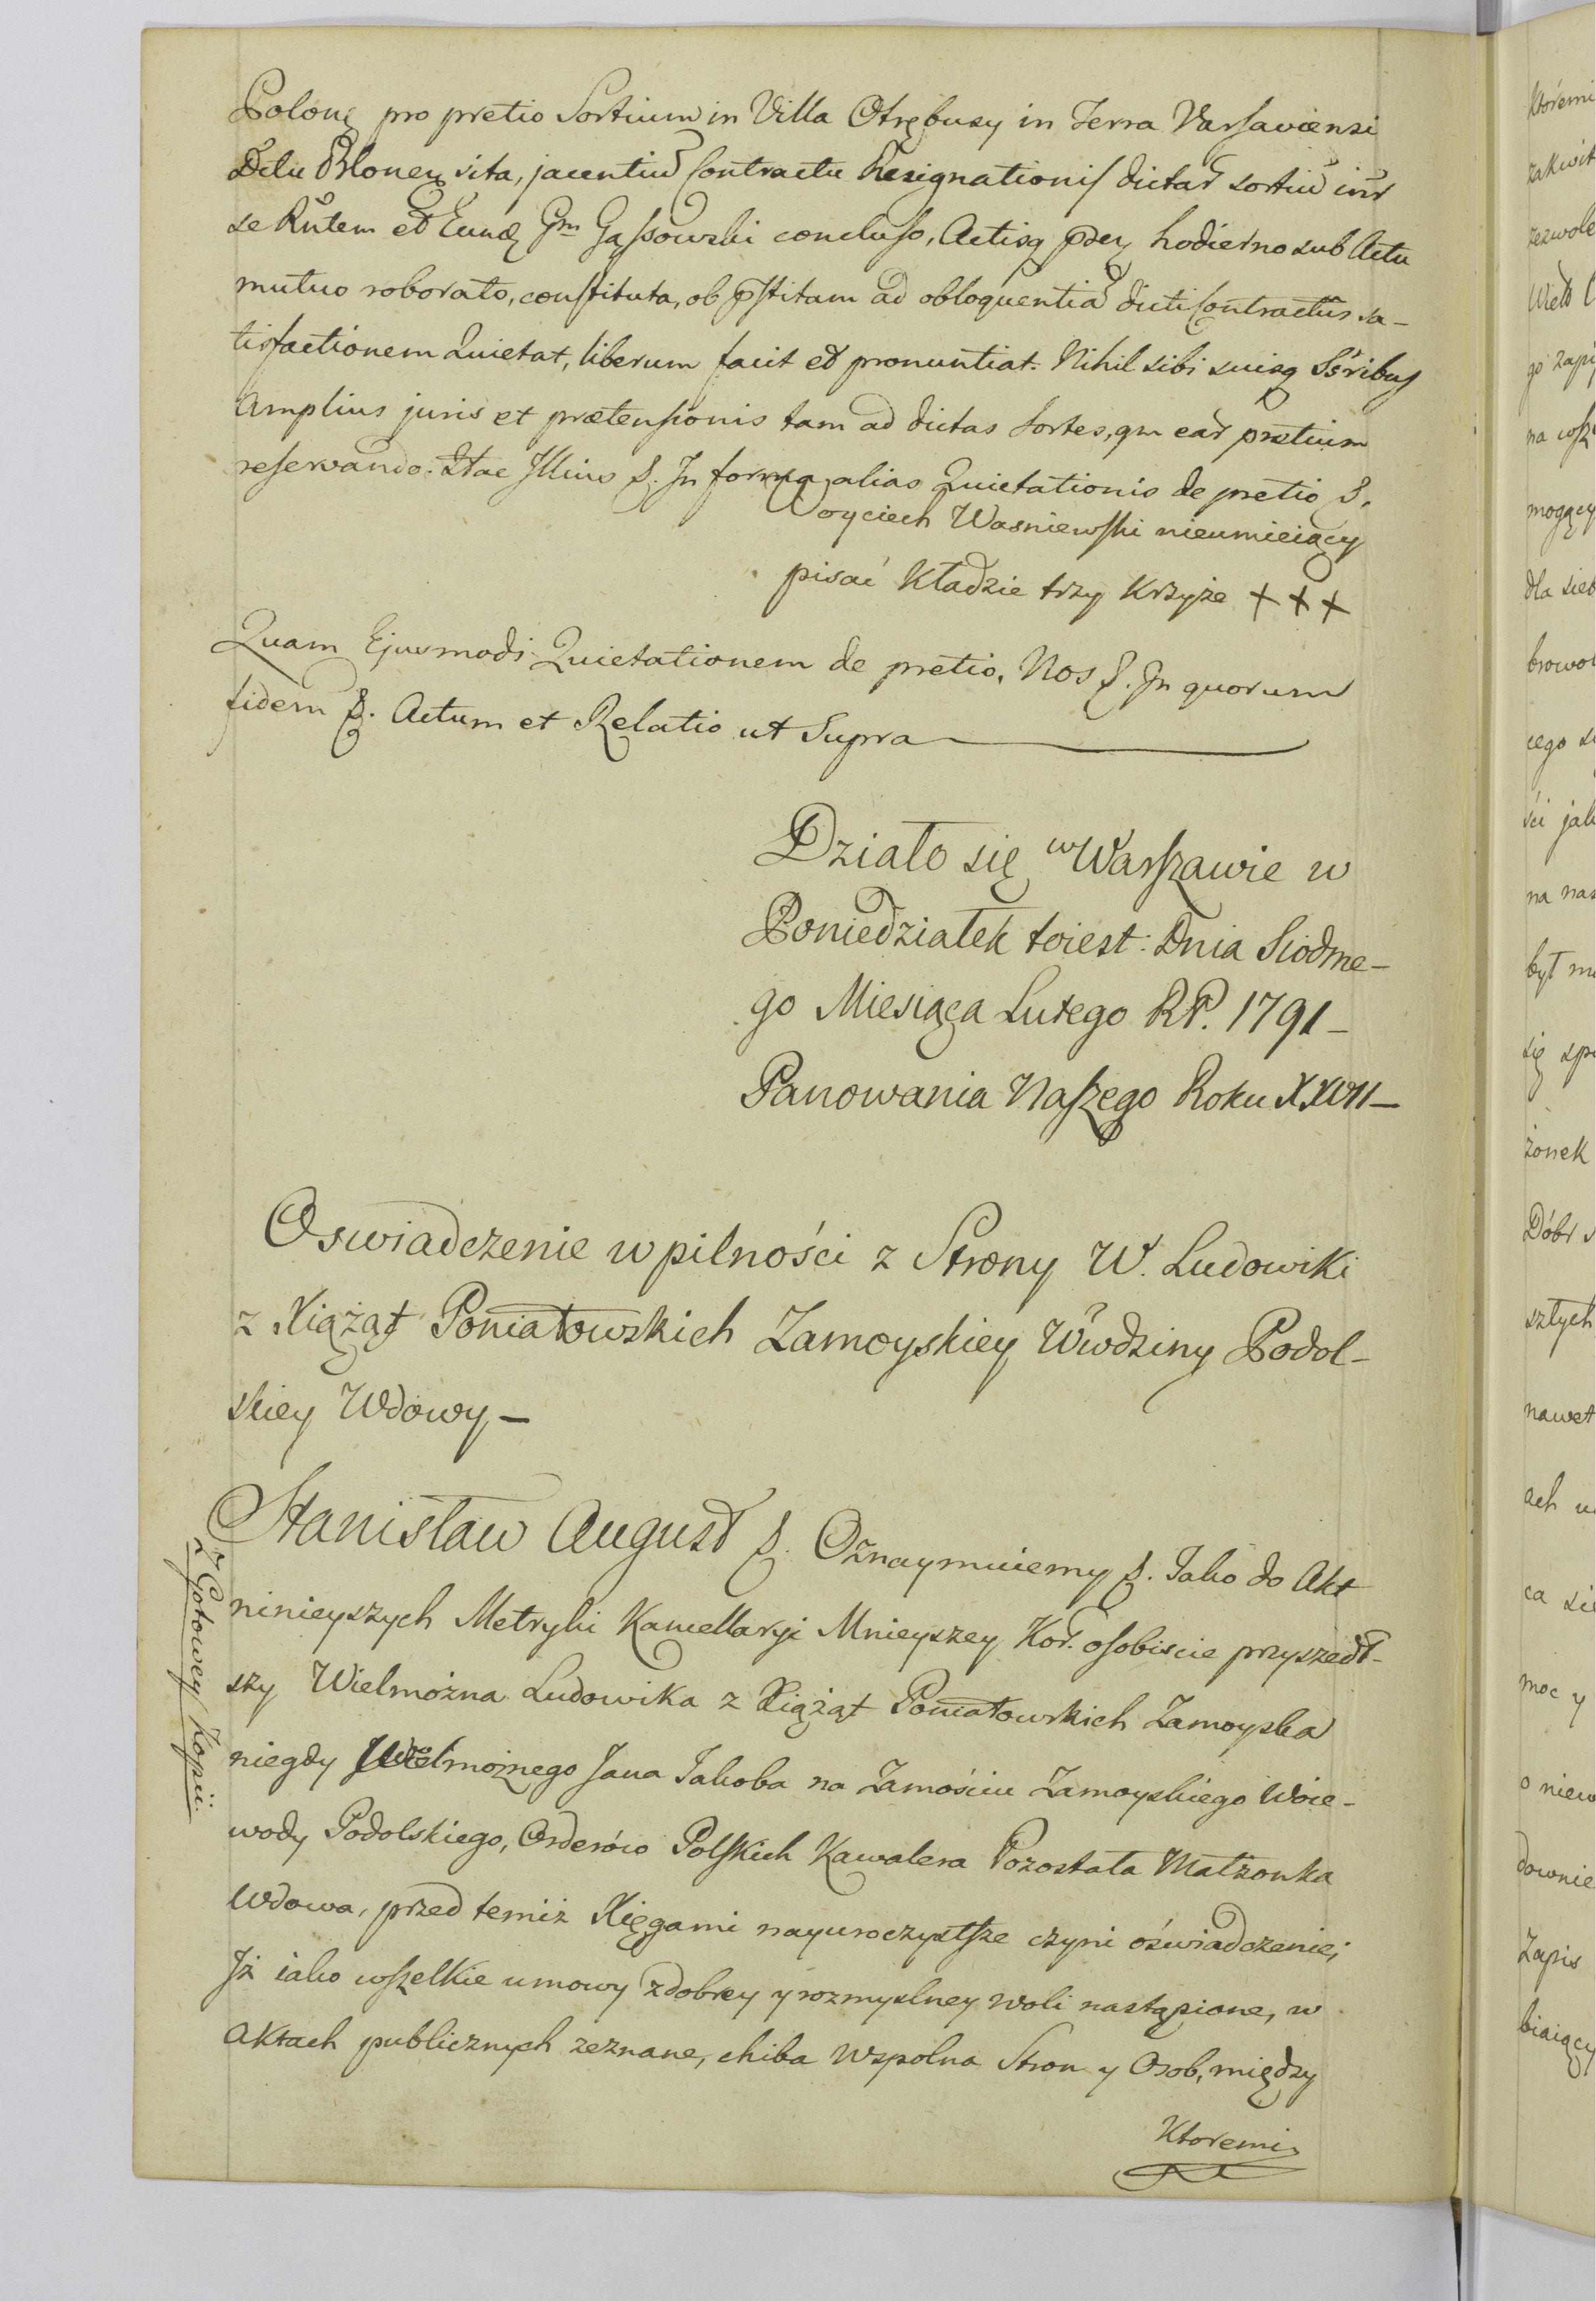 Polonę pro pretio Sortium in Villa Otrębusy in Terra Varsaviensi
Dctu Blonen sita, jacentiū Contractu Resignationis dictar sortiū intr
se Rntem et Eundę Gm Gąssowski concluso, Actisq pn̄ty hodierno sub Actu
mutuo roborato, constituta, ob pstitam ad obloquentiā dicti Contractus sa-
tisfactionem Quietat, liberum facit et pronuntiat. Nihil sibi suisq Ssribus
Amplius juris et prætensionis tam ad dictas Sortes, qm ear pretium
reservando. Stae Illius &. In forma, alias Quietationis de pretio &.
Woyciech Wasniewski nieumieiący
pisać Kładzie trzy Krzyże + + +
Quam Ejusmodi Quietationem de pretio, Nos &. In quorum
fidem &. Actum et Relatio ut Supra
Działo się w Warszawie w
Poniedziałek toiest: Dnia Siodme-
go Miesiąca Lutego RP. 1791-
Panowania Naszego Roku XXVII-
Oswiadczenie w pilności z Strony W. Ludowiki
z Xiążąt Poniatowskich Zamoyskiey Wwdziny Podol-
skiey Wdowy-
Stanisław August &. Oznaymuiemy &. Iako do Akt
ninieyszych Metryki Kancellaryi Mnieyszey Kor. osobiscie przyszedł-
szy Wielmożna Ludowika z Xiążąt Poniatowskich Zamoyska
niegdy Wielmożnego Jana Jakoba na Zamościu Zamoyskiego Woie-
wody Podolskiego, Orderów Polskich Kawalera Pozostała Małżonka
Wdowa, przed temiż Xięgami nayuroczystsze czyni oświadczenie,
Iż iako wszelkie umowy z dobrey y rozmyslney woli nastąpione, w
Aktach publicznych zeznane, chiba wspolna Stron y Osob, między
Ktoremi
z Gotowey Kopii.
Ktoremi
zakwit
zezwole
Wieło
go zapi
na wsz
mogący
dla sieb
browol
cego
ści jak
na nas
był
się
żonek
Dóbr
szłych
nawet
ach
ca się
moc y
o niew
downie
Zapis
biaiący